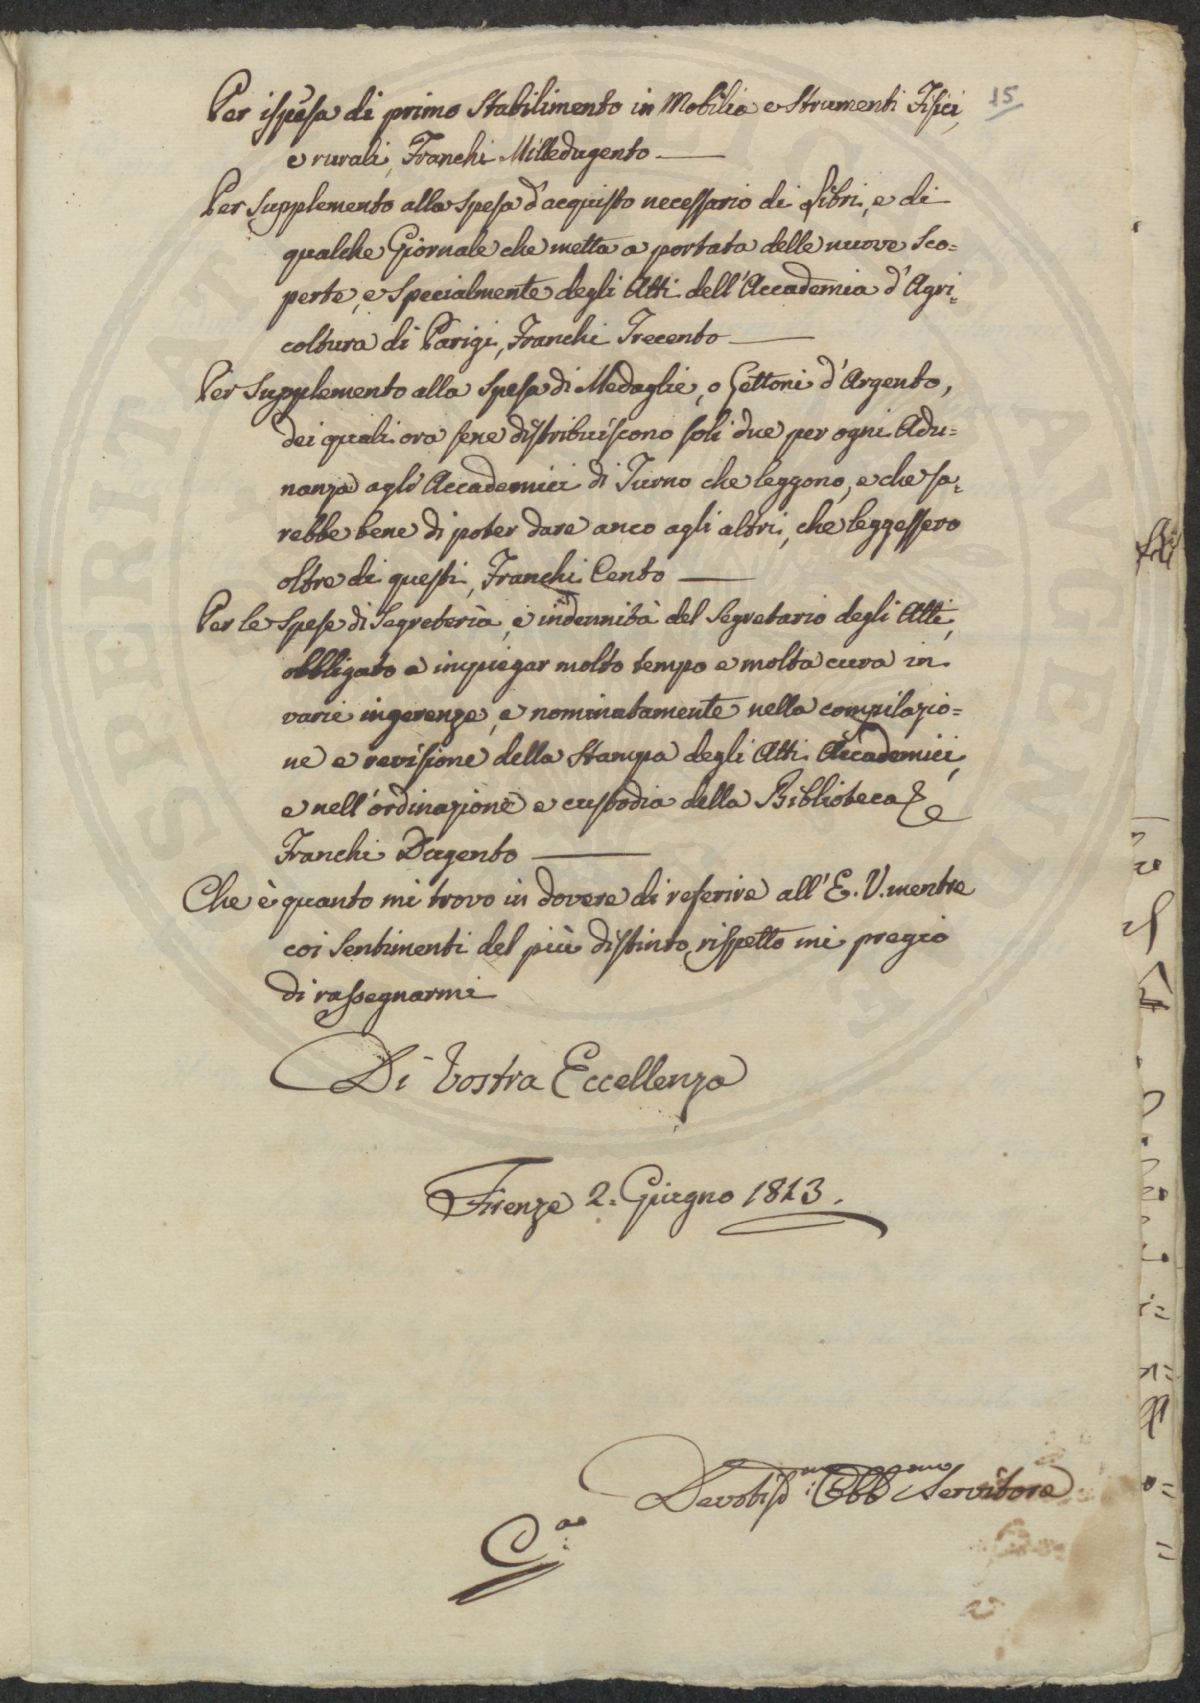 15
Per ispesa di primo Stabilimento in Mobilia e Strumenti Fisici,
e rurali, Franchi Milledugento
Per Supplemento alla Spesa d'acquisto necessario di Libri, e di
qualche Giornale che metta a portata delle nuove Sco=
perte, e specialmente degli Atti dell'Accademia d'Agri=
coltura di Parigi, Franchi Trecento
Per Supplemento alla Spesa di Medaglie, o Gettoni d'Argento,
dei quali ora sene distribuiscono soli due per ogni Adu=
nanza agli Accademici di Turno che leggono, e che sa=
rebbe bene di poter dare anco agli altri, che leggessero
oltre di questi, Franchi Cento
Per le Spese di Segreteria, e indennità del Segretario degli Atti,
obbligato a impiegar molto tempo e molta cura in
varie ingerenze, e nominatamente nella compilazio=
ne e revisione della Stampa degli Atti Accademici,
e nell'ordinazione e custodia della Biblioteca &
Franchi Dugento
Che è quanto mi trovo in dovere di referire all'E. V. mentre
coi Sentimenti del più distinto rispetto mi pregio
di rassegnarmi
Di Vostra Eccellenza
Firenze 2. Giugno 1813.
Devotis.mo Obb.mo Servitore